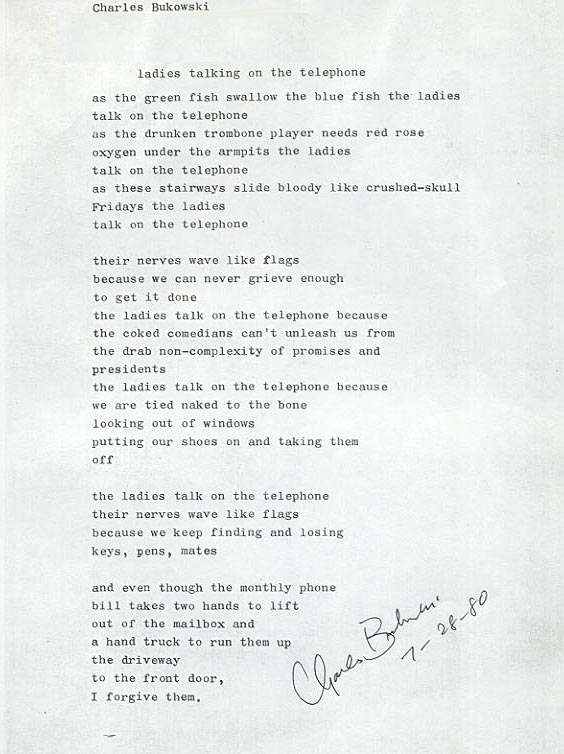 Charles Bukowski
ladies talking on the telephone
as the green fish swallow the blue fish the ladies
talk on the telephone
as the drunken trombone player needs red rose
oxygen under the armpits the ladies
talk on the telephone
as these stairways slide bloody like crushed-skull
Fridays the ladies
talk on the telephone
their nerves wave like flags
because we can never grieve enough
to get it done
the ladies talk on the telephone because
the coked comedians can't unleash us from
the drab non-complexity of promises and
presidents
the ladies talk on the telephone because
we are tied naked to the bone
looking out of windows
putting our shoes on and taking them
off
the ladies talk on the telephone
their nerves wave like flags
because we keep finding and losing
keys, pens, mates
and even though the monthly phone
bill takes two hands to lift
out of the mailbox and
a hand truck to run them up
the driveway
to the front door,
I forgive them.
Charles Bukowski
7-28-80